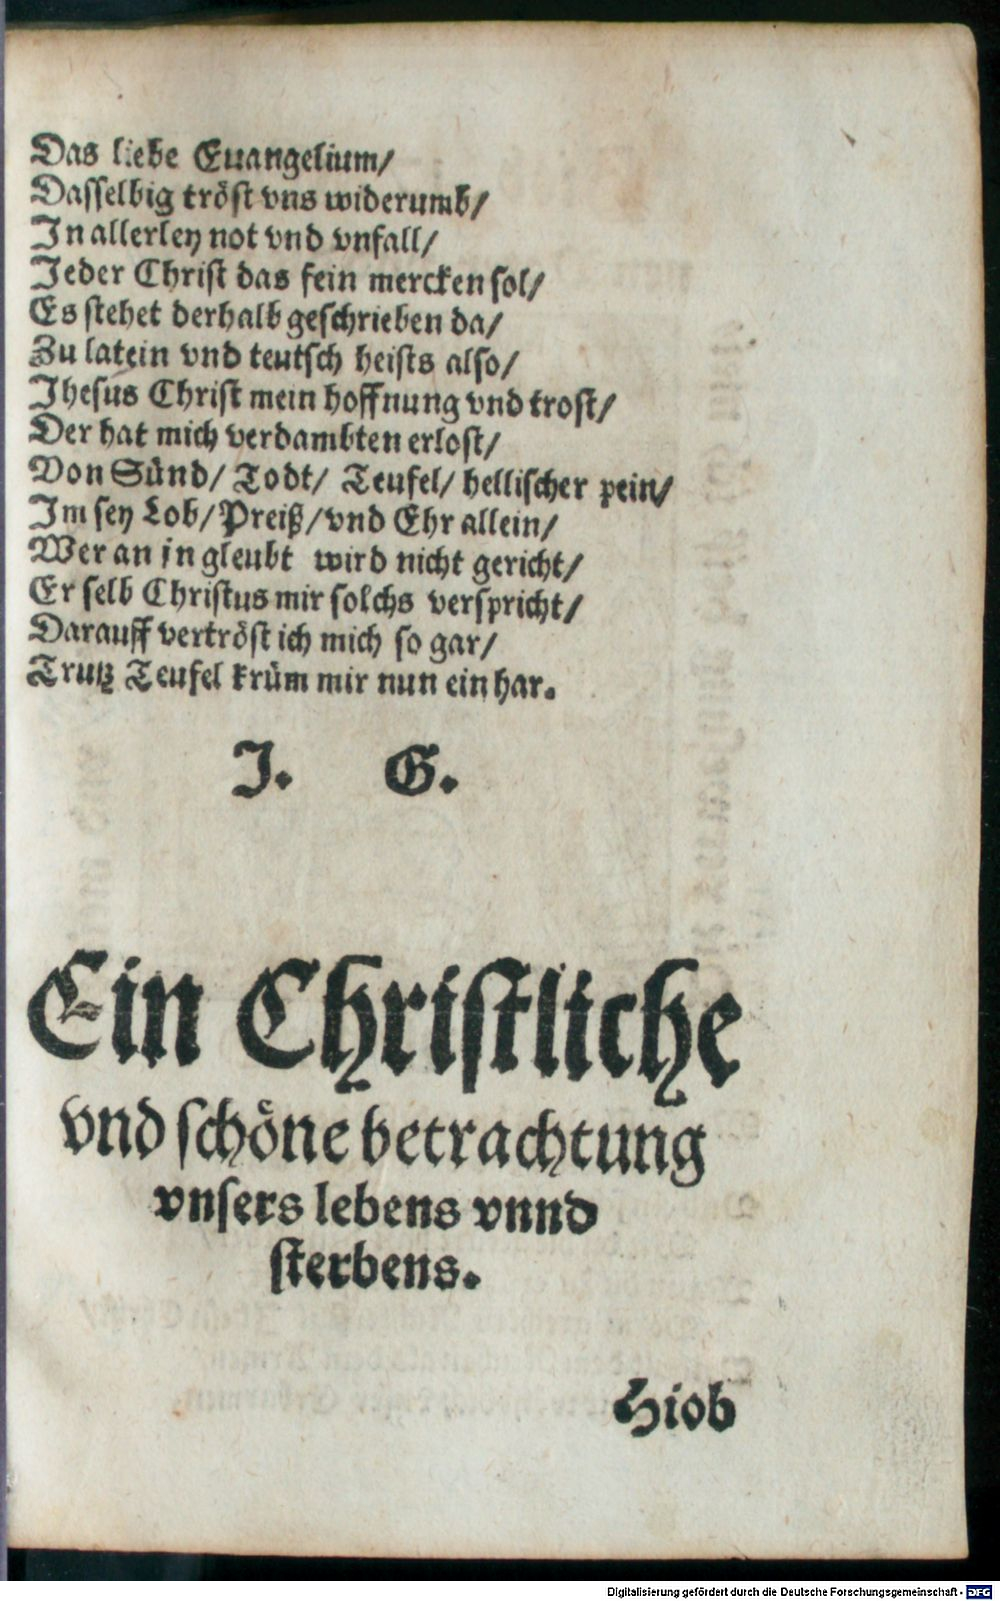 Das liebe Euangelium/
Dasselbig tröst vns widerumb/
In allerley not vnd vnfall/
Jeder Christ das fein mercken sol/
Es stehet derhalb geschrieben da/
Zu latein vnd teutsch heists also/
Jhesus Christ mein hoffnung vnd trost/
Der hat mich verdambten erlost/
Von Sünd/ Todt/ Teufel/ hellischer pein/
Im sey Lob/ Preiß/ vnd Ehr allein/
Wer an jn gleubt wird nicht gericht/
Er selb Christus mir solchs verspricht/
Darauff vertröst ich mich so gar/
Trutz Teufel krüm mir nun ein har.
J. G.
Ein Christliche
vnd schöne betrachtung
vnsers lebens vnnd
sterbens.
Hiob
Digitalisierung gefördert durch die Deutsche Forschungsgemeinschaft - DFG